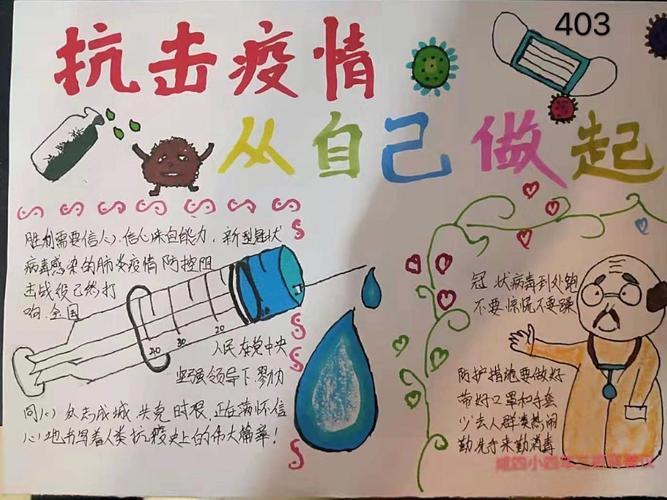 403
抗击疫情
从自己做起
胜利需要信心，信心来自能力，新型冠状
病毒感染的肺炎疫情防控阻
击战役已经打
响，全国
人民在党中央
坚强领导下，勠力
同心，众志成城，共克时艰，正在满怀信
心地书写着人类抗疫史上的伟大篇章！
冠状病毒到处跑
不要惊慌不要躁
防护措施要做好
带好口罩和手套
少去人群凑热闹
勤洗手来勤消毒
20
30
40
咸四小四